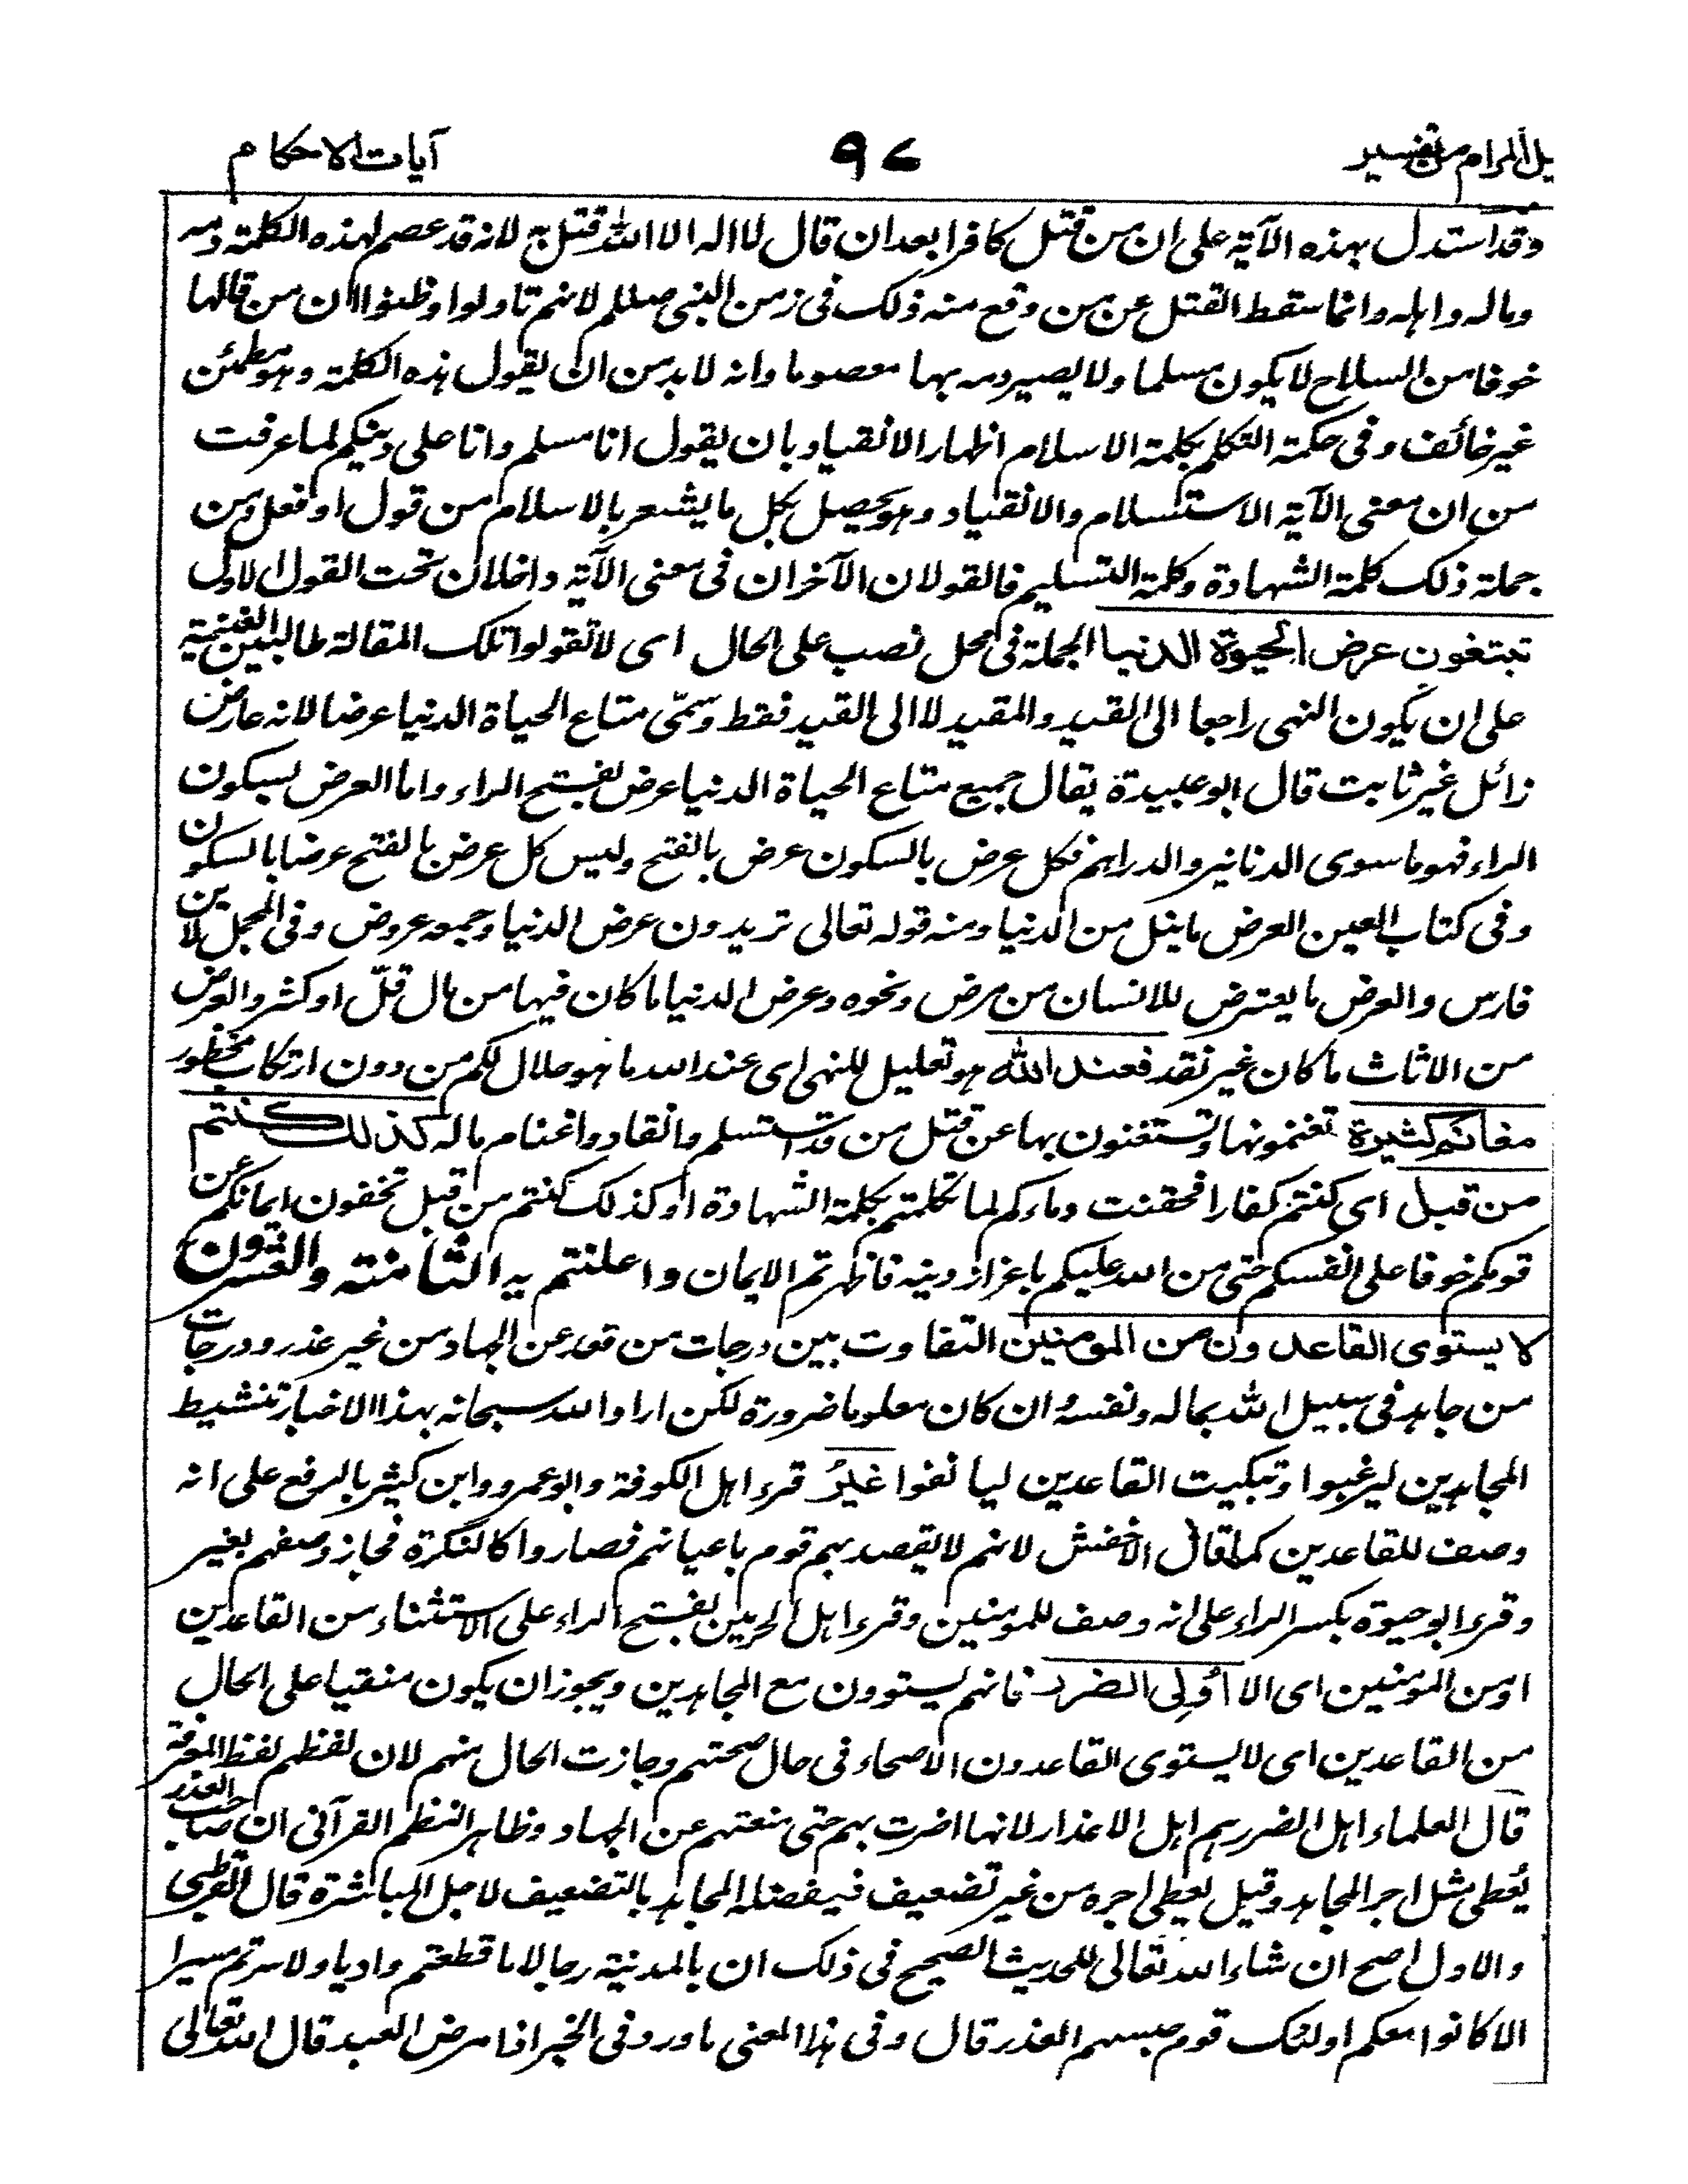 يل المرام من تفسير ٩٧ آيات الاحكام
وقد استدل بهذه الآية على ان من قتل كافرا بعد ان قال لا اله الا الله قتل به لانه قد عصم لهذه الكلمة دمه
وماله واهله وانما سقط القتل عن من وقع منه ذلك فى زمن النبى صللم لانهم تاولوا وظنوا ان من قالها
خوفا من السلاح لا يكون مسلما ولا يصير دمه بها معصوما وانه لابد من ان يقول هذه الكلمة وهو مطمئن
غير خائف وفى حكمة التكلم بكلمة الاسلام اظهار الانقياد بان يقول انا مسلم وانا على دينكم لما عرفت
من ان معنى الآية الاستسلام والانقياد وهو يحصل بكل ما يشعر بالاسلام من قول او فعل ومن
جملة ذلك كلمة الشهادة وكلمة التسليم فالقولان الآخران فى معنى الآية داخلان تحت القول الاول
تبتغون عرض الحيوة الدنيا الجملة فى محل نصب على الحال اى لا تقولوا تلك المقالة طالبين الغنيمة
على ان يكون النهى راجعا الى القيد والمقيد لا الى القيد فقط وسمّى متاع الحياة الدنيا عرضا لانه عارض
زائل غير ثابت قال ابو عبيدة يقال جميع متاع الحياة الدنيا عرض بفتح الراء واما العرض بسكون
الراء فهو ما سوى الدنانير والدراهم فكل عرض بالسكون عرض بالفتح وليس كل عرض بالفتح عرضا بالسكون
وفى كتاب العين العرض ما ينل من الدنيا ومنه قوله تعالى تريدون عرض الدنيا وجمعه عروض وفى المجمل لابن
فارس والعرض ما يعترض للانسان من مرض ونحوه وعرض الدنيا ما كان فيها من مال قلّ او كثر والعرض
من الاثاث ما كان غير نقد فعند الله هو تعليل للنهى اى عند الله ما هو حلال لكم من دون ارتكاب محظور
مغانم كثيرة تغنمونها وتستغنون بها عن قتل من قد استسلم وانقاد واغتنام ماله كذلك كنتم
من قبل اى كنتم كفارا فحقنت دماءكم لما تكلمتم بكلمة الشهادة او كذلك كنتم من قبل تخفون ايمانكم عن
قومكم خوفا على انفسكم حتى من الله عليكم باعزاز دينه فاظهرتم الايمان واعلنتم به الثامنته والعشرون
لا يستوى القاعدون من المومنين التفاوت بين درجات من قعد عن الجهاد من غير عذر ودرجات
من جاهد فى سبيل الله بماله ونفسه وان كان معلوما ضرورة لكن اراد الله سبحانه بهذا الاخبار تنشيط
المجاهدين ليرغبوا وتبكيت القاعدين ليانفوا غيرُ قرء اهل الكوفة وابو عمرو وابن كثير بالرفع على انه
وصف للقاعدين كما قال الاخفش لانهم لا يقصد بهم قوم باعيانهم فصاروا كالنكرة فجاز وصفهم بغير
وقرء ابو حيوة بكسر الراء على انه وصف للمومنين وقرء اهل الحرمين بفتح الراء على الاستثناء من القاعدين
او من المومنين اى الا اُولِى الضرر فانهم يستوون مع المجاهدين ويجوز ان يكون منتقيا على الحال
من القاعدين اى لا يستوى القاعدون الاصحاء فى حال صحتهم وجازت الحال منهم لان لفظهم لفظ المعرفة
قال العلماء اهل الضرر هم اهل الاعذار لانها اضرت بهم حتى منعتهم عن الجهاد وظاهر النظم القرآنى ان صاحب العذر
يُعطى مثل اجر المجاهد وقيل يعطى اجره من غير تضعيف فيفضله المجاهد بالتضعيف لاجل المباشرة قال القرطبى
والاول اصح ان شاء الله تعالى للحديث الصحيح فى ذلك ان بالمدينة رجالا ما قطعتم واديا ولا سرتم مسيرا
الا كانوا معكم اولئك قوم حبسهم العذر قال وفى هذا المعنى ما ورد فى الخبر اذا مرض العبد قال الله تعالى